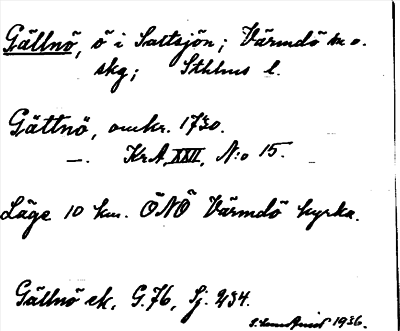 Gällnö, ö i Saltsjön; Värmdö m. o.
skg; Sthlms l.
Gättnö, omkr. 1730.
—. KrA, XXII, N:o 15.
Läge 10 km. ÖNÖ Värmdö kyrka.
Gällnö ek. G. 76, Sj. 234.
1936.